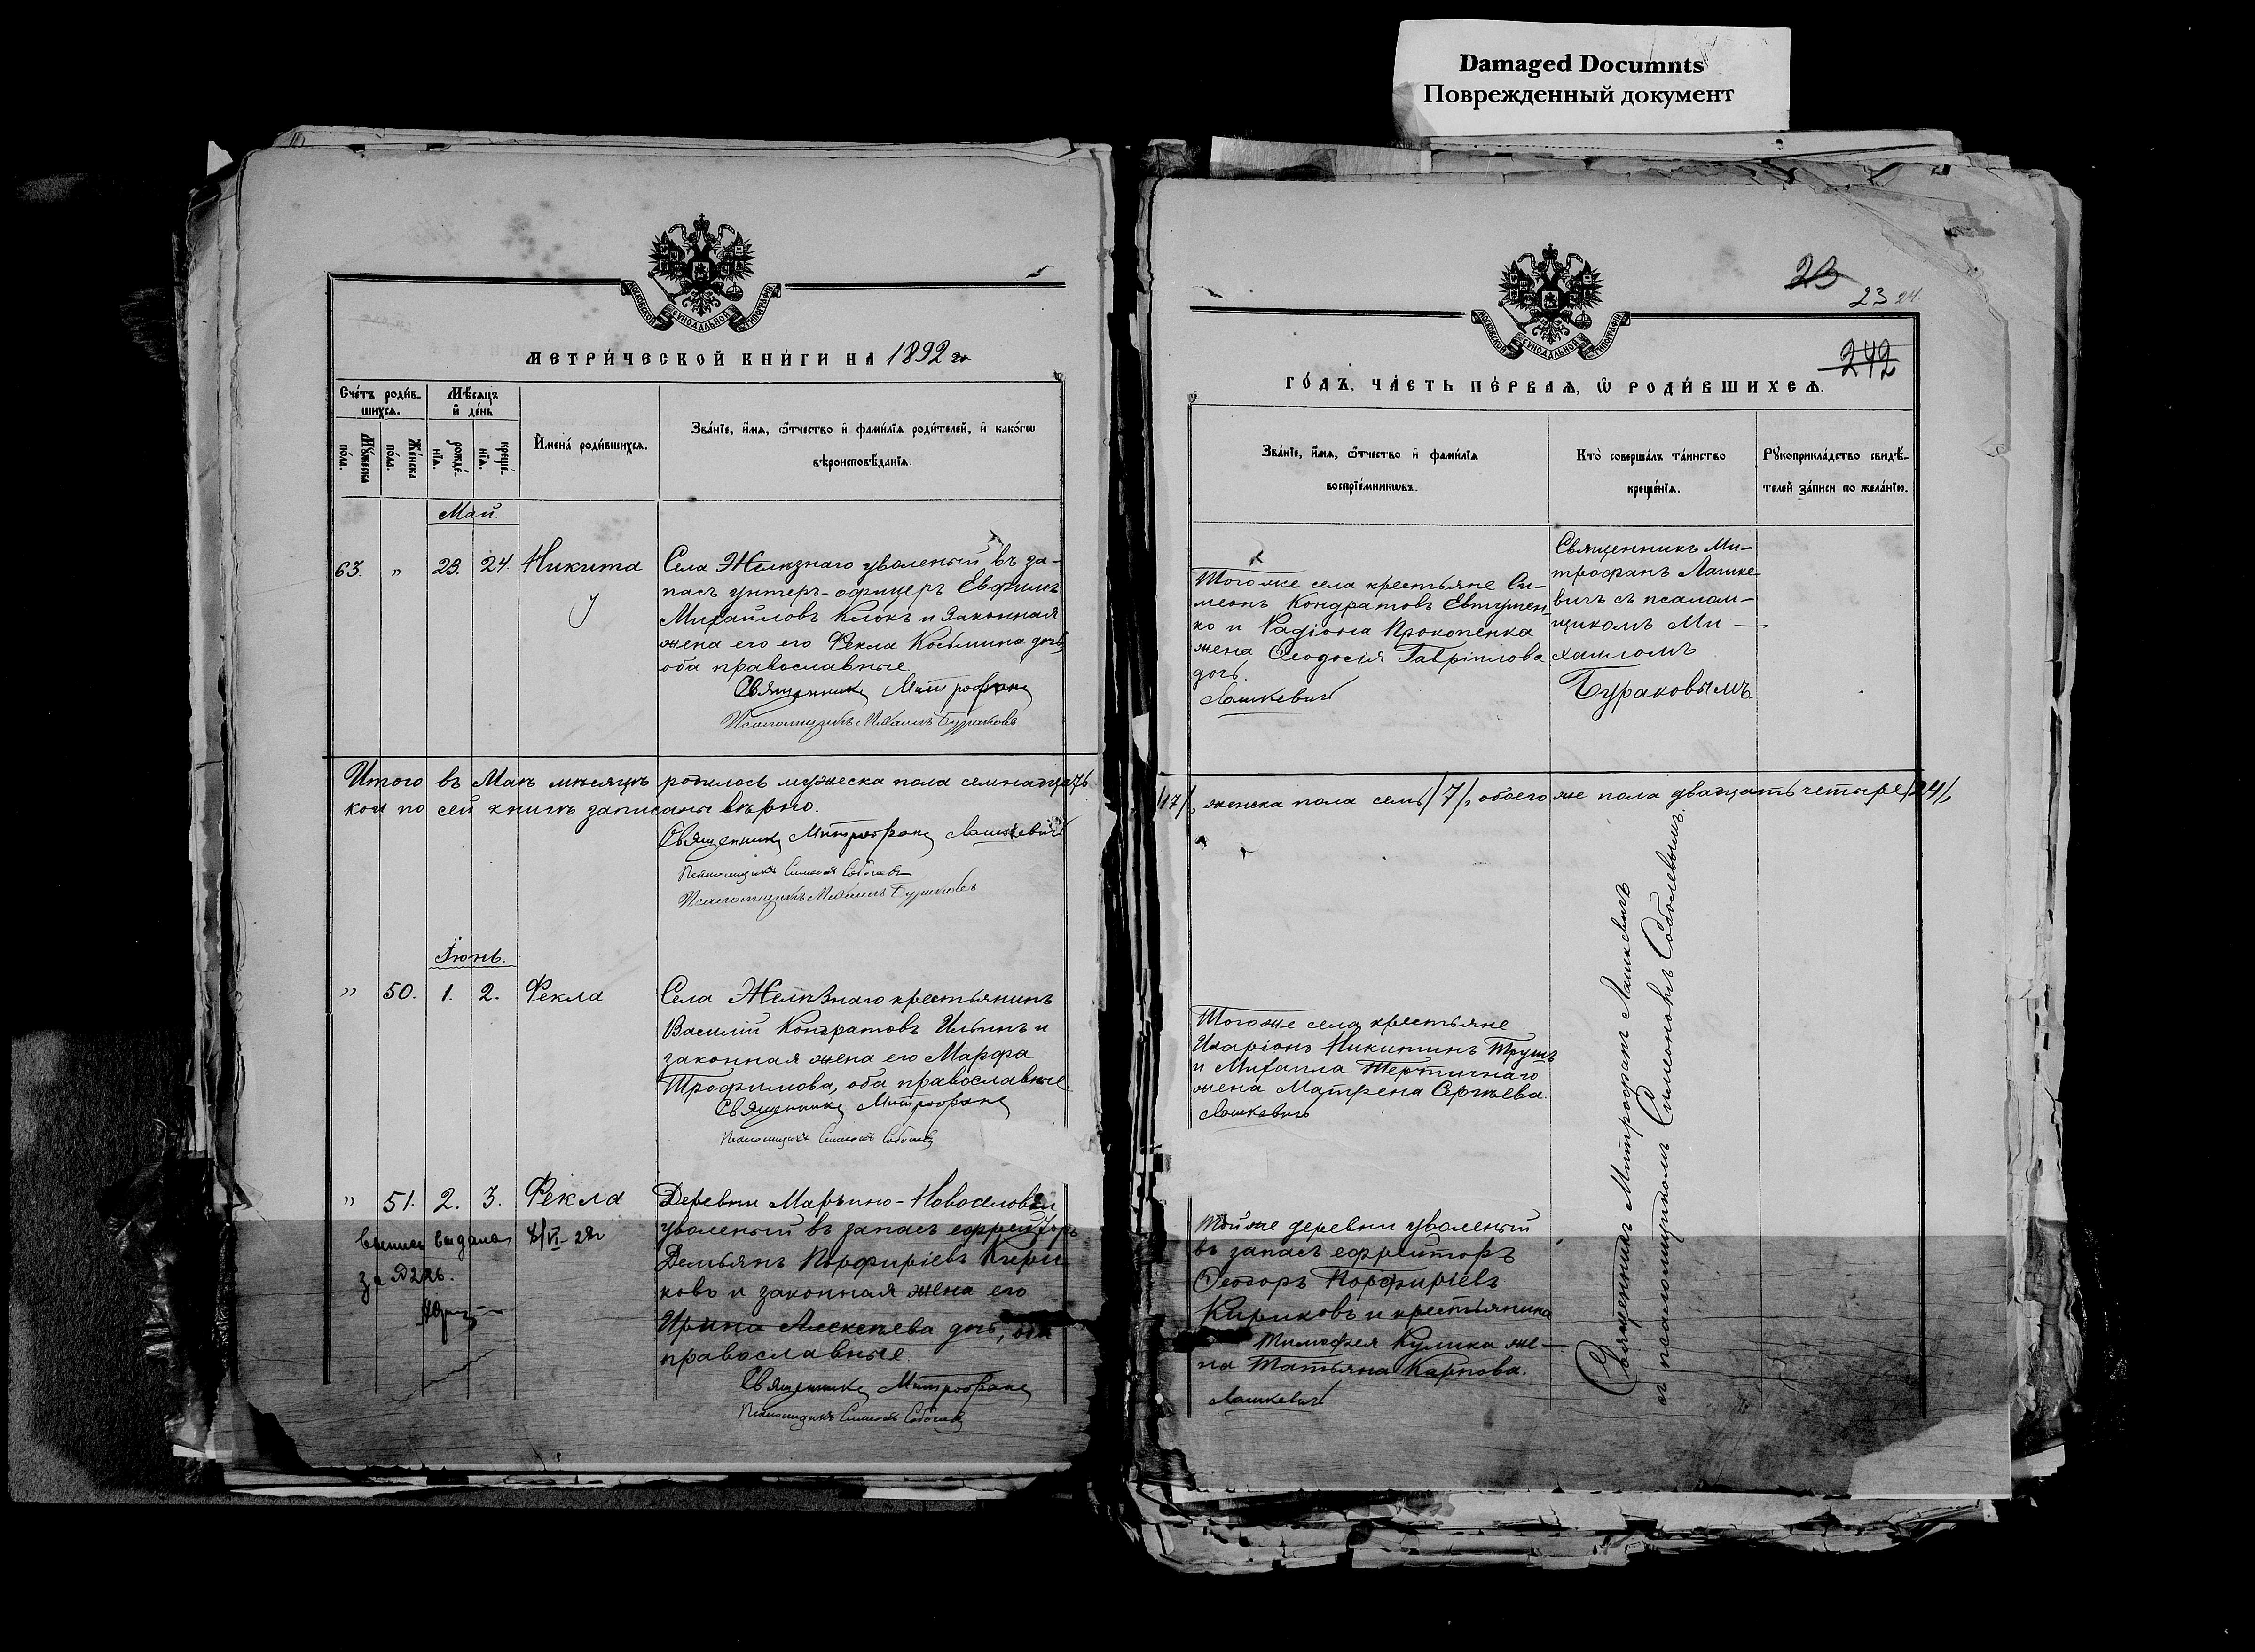 Damaged Documnts
Поврежденный документ
МОСКОВСКОЙ СѴНОДАЛЬНОЙ ТИПОГРАФІИ
МЕТРИ́ЧЕСКОЙ КНИ́ГИ НА 1892 го
Сче́тъ роди́в-
шихся.
Мѣ́сяцъ
и҆ де́нь
Мꙋ́жеска
по́ла.
Же́нска
по́ла.
рожде́-
нїѧ.
креще́-
нїѧ.
И҆мена̀ роди́вшихсѧ.
Зва́нїе, и҆́мѧ, ѻ҆́тчество и҆ фами́лїѧ роди́телей, и҆ како́гѡ
вѣроисповѣ́данїѧ.
Май.
63. " 23. 24. Никита
Села Желѣзнаго уволеный въ за-
пасъ унтеръ-офицеръ Евфимъ
Михайловъ Клокъ и законная
жена его его Фекла Косьмина дочь,
оба православные.
Священникъ Митрофанъ
Псаломщикъ Михаилъ Бураковъ
Итого въ Маѣ мѣсяцѣ родилось мужеска пола семнадцать
кои по сей книгѣ записаны вѣрно.
Священникъ Митрофанъ Лашкевичъ
Псаломщикъ Симеонъ Соболевъ
Псаломщикъ Михаилъ Бураковъ
Іюнь.
" 50. 1. 2. Фекла
Села Желѣзнаго крестьянинъ
Василій Кондратовъ Ильинъ и
законная жена его Марфа
Трофимова, оба православные.
Священникъ Митрофанъ
Псаломщикъ Симеонъ Соболевъ
" 51. 2. 3. Фекла
выдана 8/VI-28г
за №226.
Деревни Марьино-Новоселовки
уволеный въ запасъ ефрейторъ
Демьянъ Порфиріевъ Кири
ковъ и законная жена его
Ирина Алексѣева дочь, оба
православные.
Священникъ Митрофанъ
Псаломщикъ Симеонъ Соболевъ
23
23 24.
242
МОСКОВСКОЙ СѴНОДАЛЬНОЙ ТИПОГРАФІИ
ГО́ДЪ, ЧА́СТЬ ПЕ́РВАѦ, Ѡ҆ РОДИ́ВШИХСѦ.
Зва́нїе, и҆́мѧ, ѻ҆́тчество и҆ фами́лїѧ
воспрїе́мникѡвъ.
Кто̀ соверша́лъ та́инство
креще́нїѧ.
Рꙋкоприкла́дство свидѣ́-
телей за́писи по жела́нїю.
Тогоже села крестьяне Си-
меонъ Кондратовъ Евтушен-
ко и Радіона Прокопенка
жена Ѳеодосія Гавріилова
дочь.
Лашкевичъ
Священникъ Ми-
трофанъ Лашке-
вичъ съ псалом-
щикомъ Ми-
хаиломъ
Бураковымъ.
/17/, женска пола семь /7/, обоего же пола двадцать четыре /24/,
Тогоже села крестьяне
Иларіонъ Никитинъ Трушъ
и Михаила Тертичнаго
жена Матрена Сергѣева.
Лашкевичъ
Тойже деревни уволеный
въ запасъ ефрейторъ
Ѳеодоръ Порфиріевъ
Кириковъ и крестьянина
Тимофея Кулика же-
на Татьяна Карпова.
Лашкевичъ
Священникъ Митрофанъ Лашкевичъ
съ псаломщикомъ Симеономъ Соболевымъ.